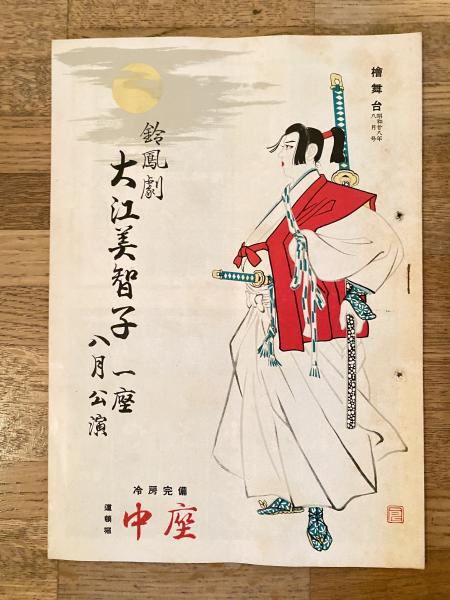 檜舞台
昭和廿八年
八月号
鈴鳳劇
大江美智子一座
八月公演
冷房完備
道頓堀
中座